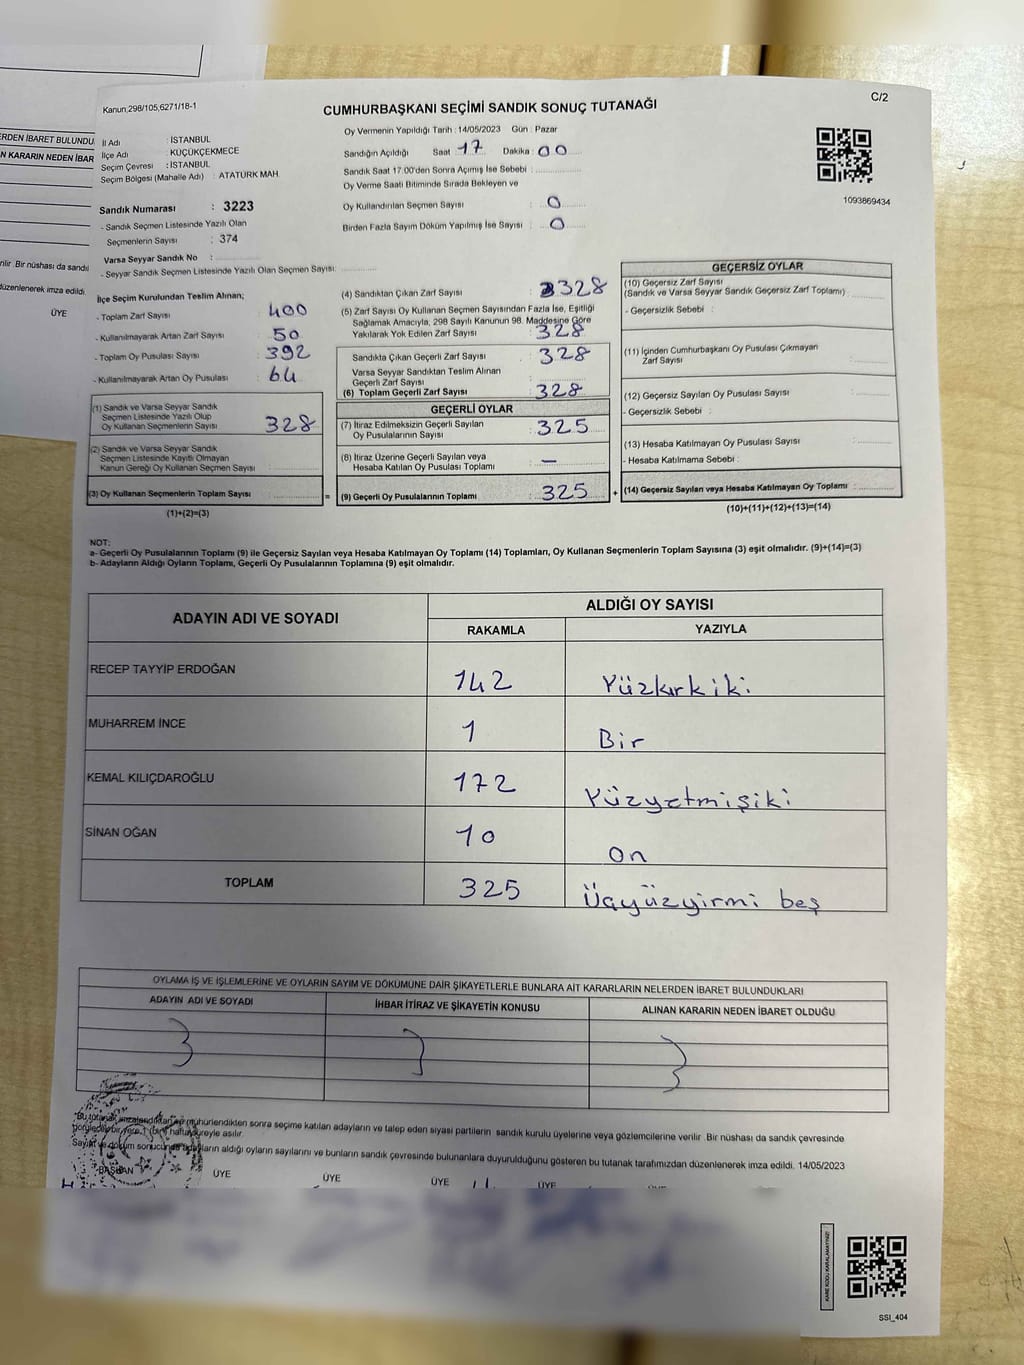 RDEN İBARET BULUNDU
N KARARIN NEDEN İBAR
rilir .Bir nüshası da sandı
düzenlenerek imza edildi.
ÜYE
Kanun,298/105,6271/18-1
CUMHURBAŞKANI SEÇİMİ SANDIK SONUÇ TUTANAĞI
C/2
İl Adı : İSTANBUL
İlçe Adı : KÜÇÜKÇEKMECE
Seçim Çevresi : İSTANBUL
Seçim Bölgesi (Mahalle Adı) : ATATÜRK MAH.
Sandık Numarası : 3223
- Sandık Seçmen Listesinde Yazılı Olan
Seçmenlerin Sayısı : 374
Varsa Seyyar Sandık No :
- Seyyar Sandık Seçmen Listesinde Yazılı Olan Seçmen Sayısı:
Oy Vermenin Yapıldığı Tarih : 14/05/2023 Gün : Pazar
Sandığın Açıldığı Saat 17 Dakika : 00
Sandık Saat 17:00'den Sonra Açımış İse Sebebi :
Oy Verme Saati Bitiminde Sırada Bekleyen ve
Oy Kullandırılan Seçmen Sayısı : 0
Birden Fazla Sayım Döküm Yapılmış İse Sayısı : 0
1093869434
İlçe Seçim Kurulundan Teslim Alınan;
- Toplam Zarf Sayısı : 400
- Kullanılmayarak Artan Zarf Sayısı : 50
- Toplam Oy Pusulası Sayısı : 392
- Kullanılmayarak Artan Oy Pusulası : 64
(1) Sandık ve Varsa Seyyar Sandık
Seçmen Listesinde Yazılı Olup
Oy Kullanan Seçmenlerin Sayısı : 328
(2) Sandık ve Varsa Seyyar Sandık
Seçmen Listesinde Kayıtlı Olmayan
Kanun Gereği Oy Kullanan Seçmen Sayısı :
(3) Oy Kullanan Seçmenlerin Toplam Sayısı : =
(1)+(2)=(3)
(4) Sandıktan Çıkan Zarf Sayısı : 328
(5) Zarf Sayısı Oy Kullanan Seçmen Sayısından Fazla İse, Eşitliği
Sağlamak Amacıyla, 298 Sayılı Kanunun 98. Maddesine Göre
Yakılarak Yok Edilen Zarf Sayısı : 328
Sandıkta Çıkan Geçerli Zarf Sayısı : 328
Varsa Seyyar Sandıktan Teslim Alınan
Geçerli Zarf Sayısı :
(6) Toplam Geçerli Zarf Sayısı : 328
GEÇERLİ OYLAR
(7) İtiraz Edilmeksizin Geçerli Sayılan
Oy Pusulalarının Sayısı : 325
(8) İtiraz Üzerine Geçerli Sayılan veya
Hesaba Katılan Oy Pusulası Toplamı : —
(9) Geçerli Oy Pusulalarının Toplamı : 325 +
GEÇERSİZ OYLAR
(10) Geçersiz Zarf Sayısı
(Sandık ve Varsa Seyyar Sandık Geçersiz Zarf Toplamı) :
- Geçersizlik Sebebi :
(11) İçinden Cumhurbaşkanı Oy Pusulası Çıkmayan
Zarf Sayısı :
(12) Geçersiz Sayılan Oy Pusulası Sayısı :
- Geçersizlik Sebebi :
(13) Hesaba Katılmayan Oy Pusulası Sayısı :
- Hesaba Katılmama Sebebi :
(14) Geçersiz Sayılan veya Hesaba Katılmayan Oy Toplamı :
(10)+(11)+(12)+(13)=(14)
NOT:
a- Geçerli Oy Pusulalarının Toplamı (9) ile Geçersiz Sayılan veya Hesaba Katılmayan Oy Toplamı (14) Toplamları, Oy Kullanan Seçmenlerin Toplam Sayısına (3) eşit olmalıdır. (9)+(14)=(3)
b- Adayların Aldığı Oyların Toplamı, Geçerli Oy Pusulalarının Toplamına (9) eşit olmalıdır.
ADAYIN ADI VE SOYADI
ALDIĞI OY SAYISI
RAKAMLA YAZIYLA
RECEP TAYYİP ERDOĞAN 142 Yüzkırkiki
MUHARREM İNCE 1 Bir
KEMAL KILIÇDAROĞLU 172 Yüzyetmişiki
SİNAN OĞAN 10 On
TOPLAM 325 Üçyüzyirmi beş
OYLAMA İŞ VE İŞLEMLERİNE VE OYLARIN SAYIM VE DÖKÜMÜNE DAİR ŞİKAYETLERLE BUNLARA AİT KARARLARIN NELERDEN İBARET BULUNDUKLARI
ADAYIN ADI VE SOYADI İHBAR İTİRAZ VE ŞİKAYETİN KONUSU ALINAN KARARIN NEDEN İBARET OLDUĞU
mühürlendikten sonra seçime katılan adayların ve talep eden siyasi partilerin sandık kurulu üyelerine veya gözlemcilerine verilir .Bir nüshası da sandık çevresinde
haftasüreyle asılır.
aldığı oyların sayılarını ve bunların sandık çevresinde bulunanlara duyurulduğunu gösteren bu tutanak tarafımızdan düzenlenerek imza edildi. 14/05/2023
BAŞKAN ÜYE ÜYE ÜYE ÜYE
SSI_404